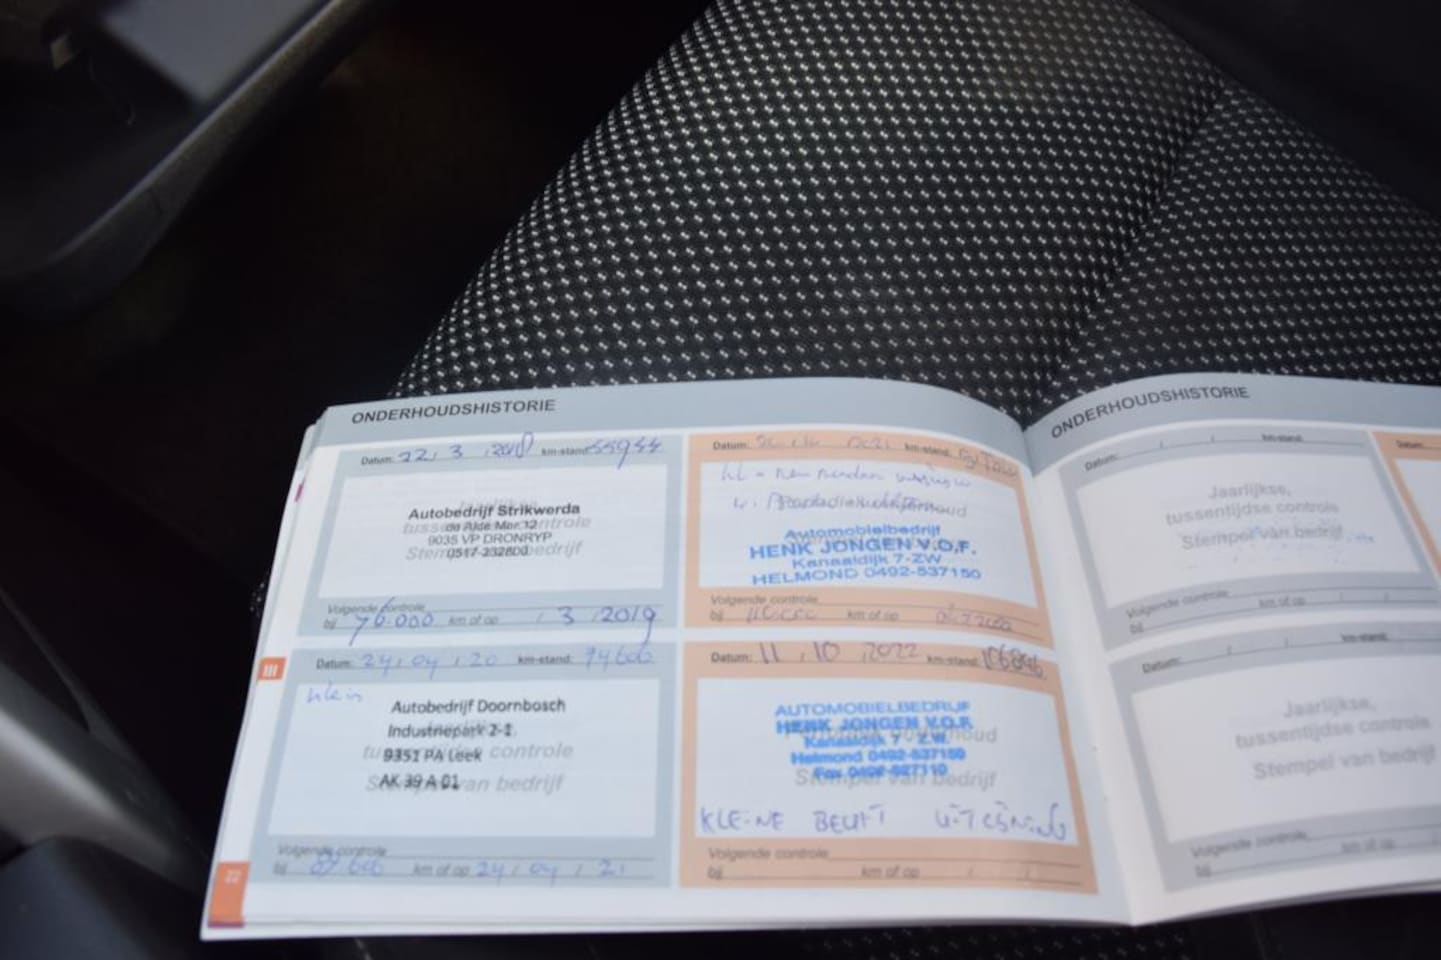 ONDERHOUDSHISTORIE
Datum: 22 / 3 / 2018 km-stand: 55944
Autobedrijf Strikwerda
de Alde Mar 12
9035 VP DRONRYP
0517-232800
tussentijdse controle
Stempel van bedrijf
Volgende controle
bij 76.000 km of op / 3 / 2019
Datum: 24 / 04 / 20 km-stand:
klein
Autobedrijf Doornbosch
Industriepark 2-1
9351 PA Leek
AK 39 A 01
Jaarlijkse,
tussentijdse controle
Stempel van bedrijf
Volgende controle
bij km of op 24 / 04 / 21
Datum: 2021 km-stand:
Automobielbedrijf
HENK JONGEN V.O.F.
Kanaaldijk 7-ZW
HELMOND 0492-537150
Volgende controle
bij km of op
Datum: 11 / 10 / 2022 km-stand: 106846
AUTOMOBIELBEDRIJF
HENK JONGEN V.O.F.
Kanaaldijk 7 - Z.W.
Helmond 0492-537150
Stempel van bedrijf
KLEINE BEURT
Volgende controle
bij km of op / /
III
22
ONDERHOUDSHISTORIE
Datum: / / km-stand:
Jaarlijkse,
tussentijdse controle
Stempel van bedrijf
Volgende controle
bij km of op / /
Datum: / / km-stand:
Jaarlijkse,
tussentijdse controle
Stempel van bedrijf
Volgende controle
bij km of op /
Datum: